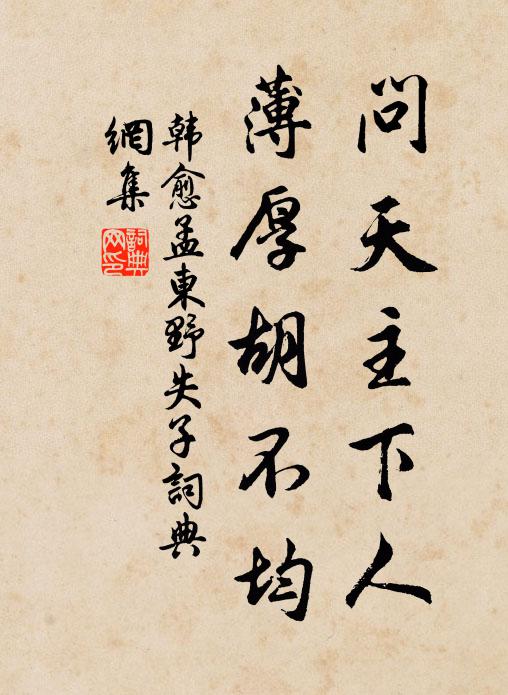 問天主下人
薄厚胡不均
韩愈孟東野失子詞典
網集
詞典
网印